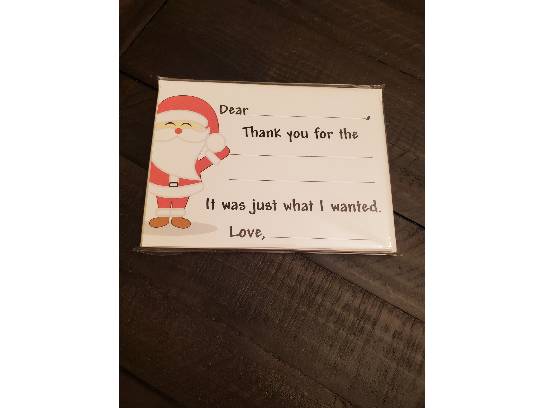 Dear ____________,
Thank you for the
____________
____________
It was just what I wanted.
Love, ____________